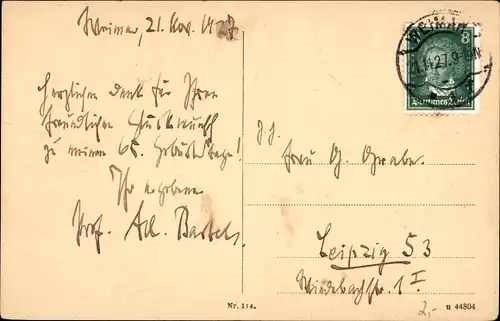 Weimar, 21. Nov. 1927
Herzlichen Dank für Ihren
freundlichen Glückwunsch
zu meinem 65. Geburtstage!
Ihr ergebener
Prof. Ad. Bartels.
WEIMAR
8
Frau G. Grabe.
Leipzig S 3
Wiedebachstr. 1 I
2,-
Nr. 114.
n 44804